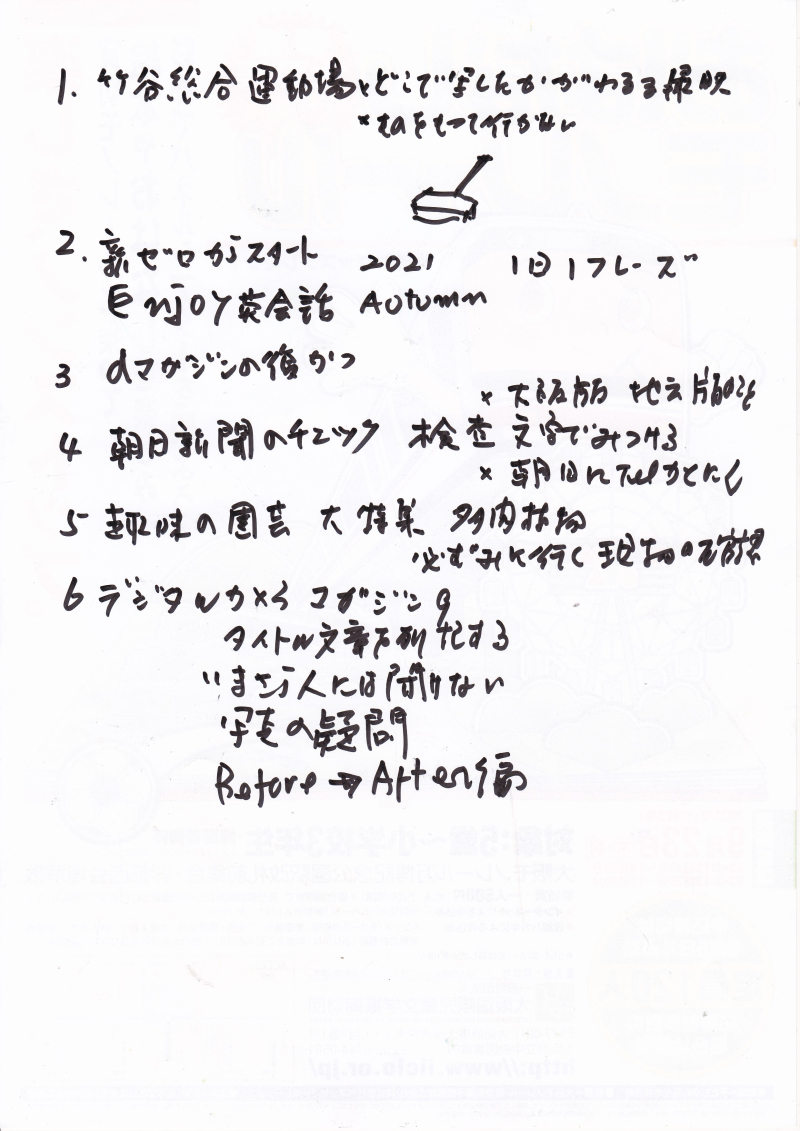 1. 竹谷総合運動場、どこで写したかがわかる撮映
2. 新ゼロからスタート 2021 1日1フレーズ
Enjoy英会話 Autumn
3 dマガジンの復かつ
× 大阪版 地方版
4 朝日新聞のチェック 検査 文字でみつける
× 朝日にTel
5 趣味の園芸 大特集 多肉植物
必ずみに行く 現物の確認
6 デジタルカメラマガジン9
タイトル文章
いまさら人には聞けない
写真の疑問
Before → After編
http://www.iiclo.or.jp/